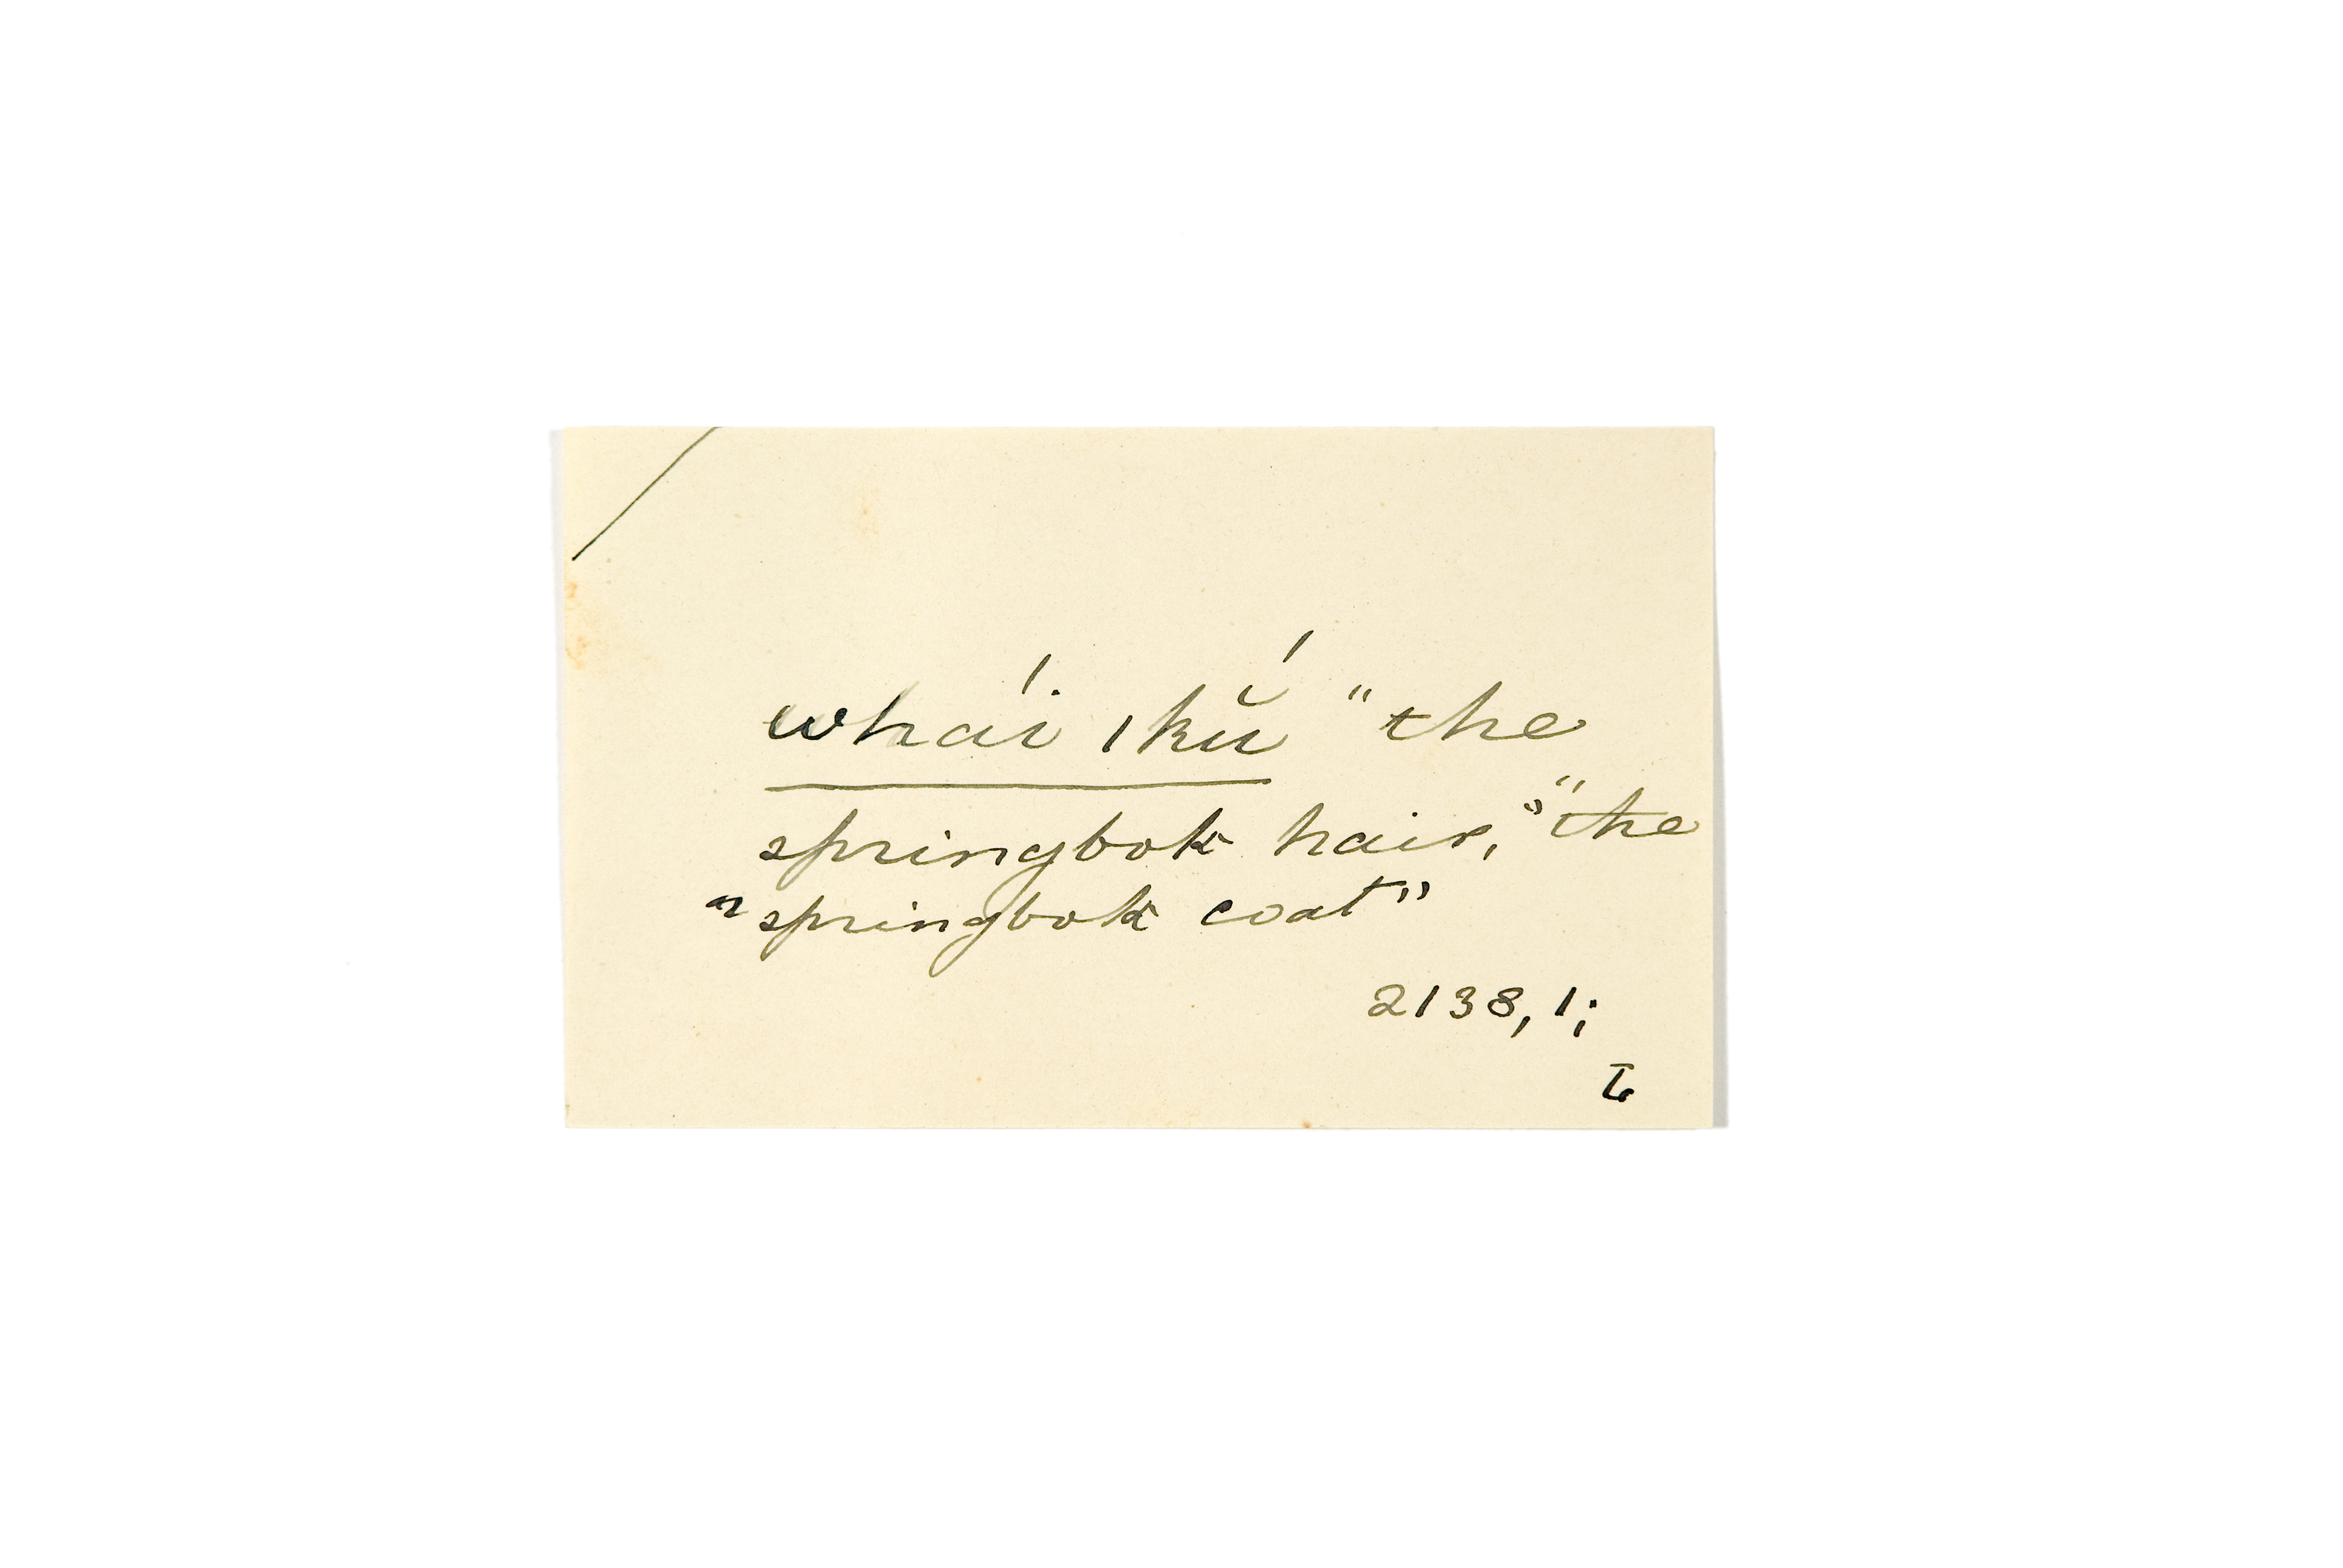 whái ǀkŭ́ "the
springbok hair," "the
"springbok coat"
2138, 1;
L